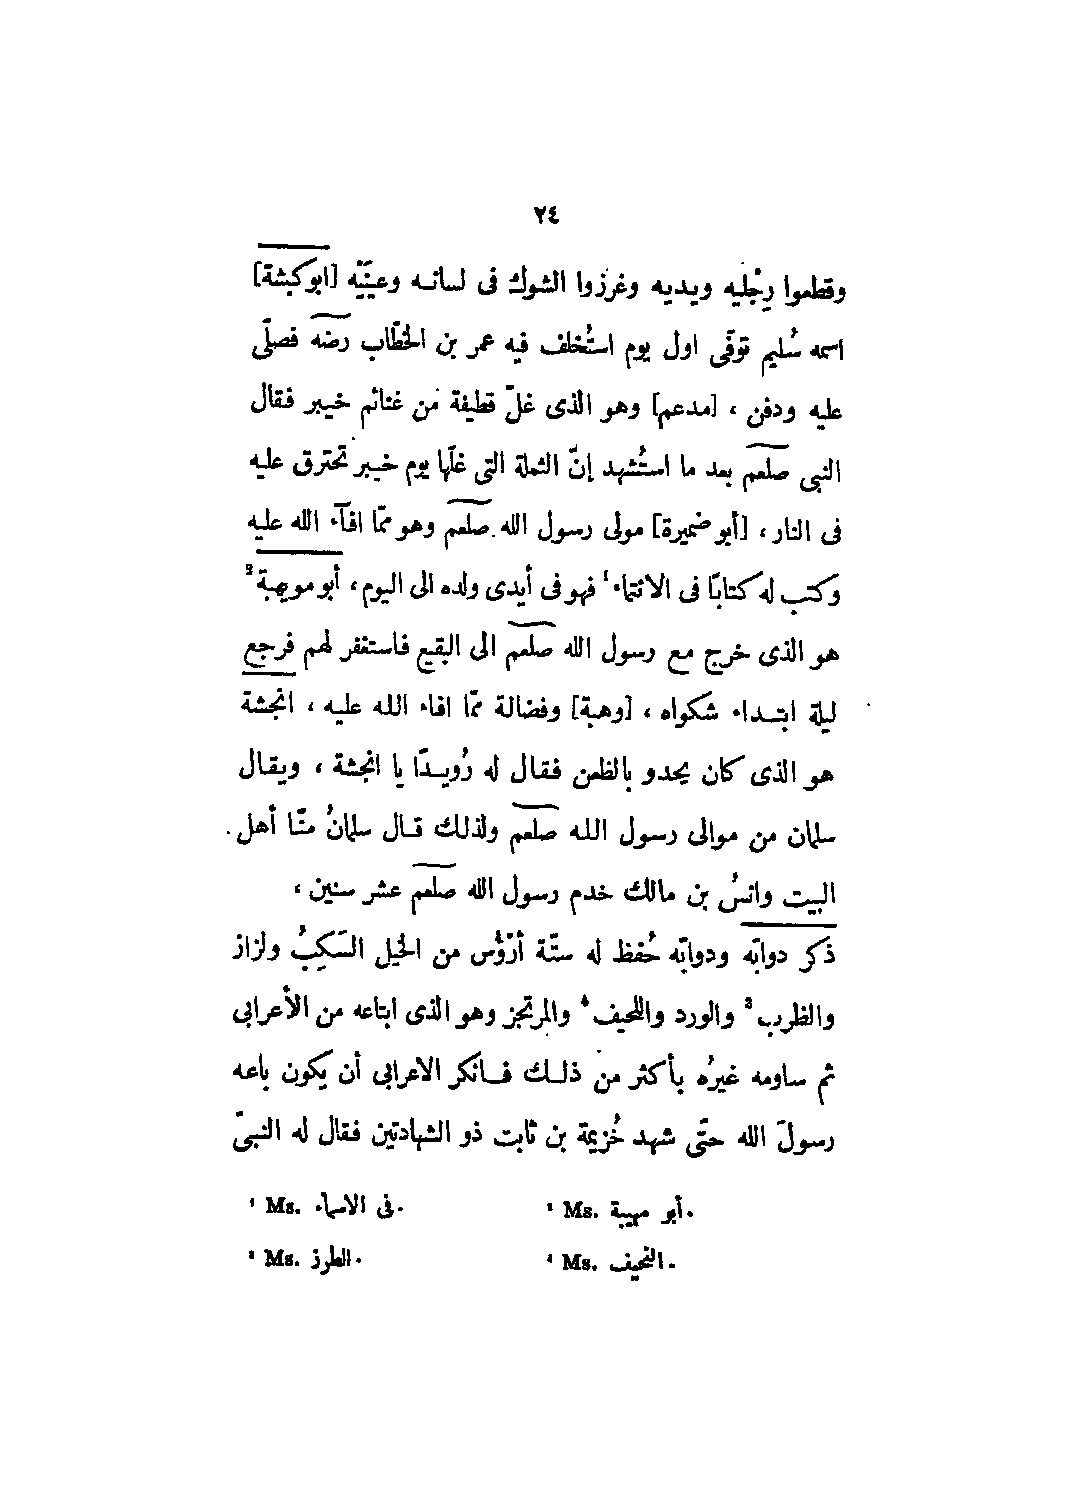 ٢٤
وقطعوا رِجْليه ويديه وغرزوا الشوك فى لسانه وعينَيْه [ابو كبشة]
اسمه سُليم توفّى اول يوم استُخلف فيه عمر بن الخطّاب رضه فصلّى
عليه ودفن ، [مدعم] وهو الذى غلّ قطيفة من غنائم خيبر فقال
النبى صلعم بعد ما استُشهد إنّ الشملة التى غلّها يوم خيبر تحترق عليه
فى النار ، [أبو ضميرة] مولى رسول الله صلعم وهو ممّا افآء الله عليه
وكتب له كتابًا فى الانتماء¹ فهو فى أيدى ولده الى اليوم ، أبو مويهبة²
هو الذى خرج مع رسول الله صلعم الى البقيع فاستغفر لهم فرجع
ليلة ابتداء شكواه ، [وهبة] وفضالة ممّا افاء الله عليه ، انجشة
هو الذى كان يحدو بالظعن فقال له رُويدًا يا انجشة ، ويقال
سلمان من موالى رسول الله صلعم ولذلك قال سلمانُ منّا أهل
البيت وانسُ بن مالك خدم رسول الله صلعم عشر سنين ،
ذكر دوابّه ودوابّه حُفظ له ستّة أرْؤُس من الخيل السَكِبُ ولزاز
والظرب³ والورد واللحيف⁴ والمرتجز وهو الذى ابتاعه من الأعرابى
ثم ساومه غيرُه بأكثر من ذلك فانكر الاعرابى أن يكون باعه
رسولَ الله حتّى شهد خُزيمة بن ثابت ذو الشهادتين فقال له النبىّ
¹ Ms. فى الاسماء.
² Ms. أبو مهيبة.
³ Ms. الطرز.
⁴ Ms. النحيف.